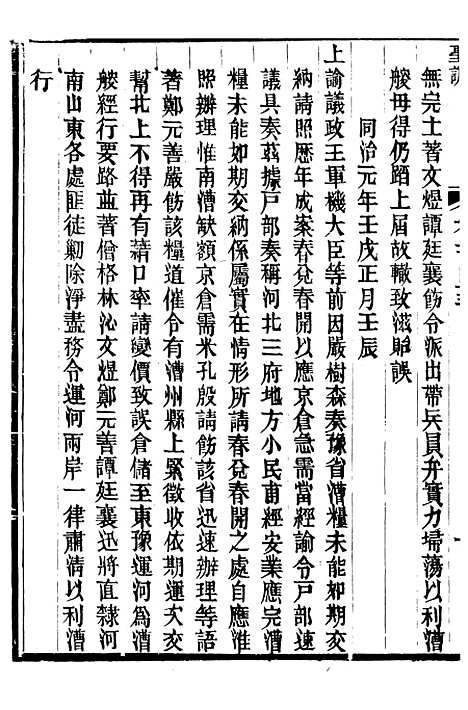 聖訓
無完土著文煜譚廷襄飭令派出帶兵員弁實力埽蕩以利漕
艘毋得仍蹈上屆故轍致滋貽誤
同治元年壬戌正月壬辰
上諭議政王軍機大臣等前因嚴樹森奏豫省漕糧未能如期交
納請照歷年成案春兌春開以應京倉急需當經諭令戸部速
議具奏茲據戸部奏稱河北三府地方小民甫經安業應完漕
糧未能如期交納係屬實在情形所請春兌春開之處自應准
照辦理惟南漕缺額京倉需米孔殷請飭該省迅速辦理等語
著鄭元善嚴飭該糧道催令有漕州縣上緊徵收依期運次交
幫北上不得再有藉口率請變價致誤倉儲至東豫運河爲漕
艘經行要路並著僧格林沁文煜鄭元善譚廷襄迅將直隸河
南山東各處匪徒勦除淨盡務令運河兩岸一律肅清以利漕
行